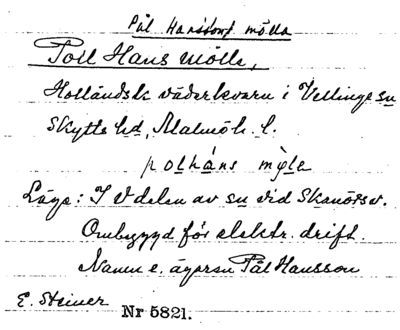 Pål Hanssons mölla
Poll Hans mölle,
Holländsk väderkvarn i Vellinge sn
Skytts hd, Malmöh. l.
polháns mỳla
Läge: I V delen av sn vid Skanörsv.
Ombyggd för elektr. drift.
Namn e. ägaren Pål Hansson
E. Steiner
Nr 5821.